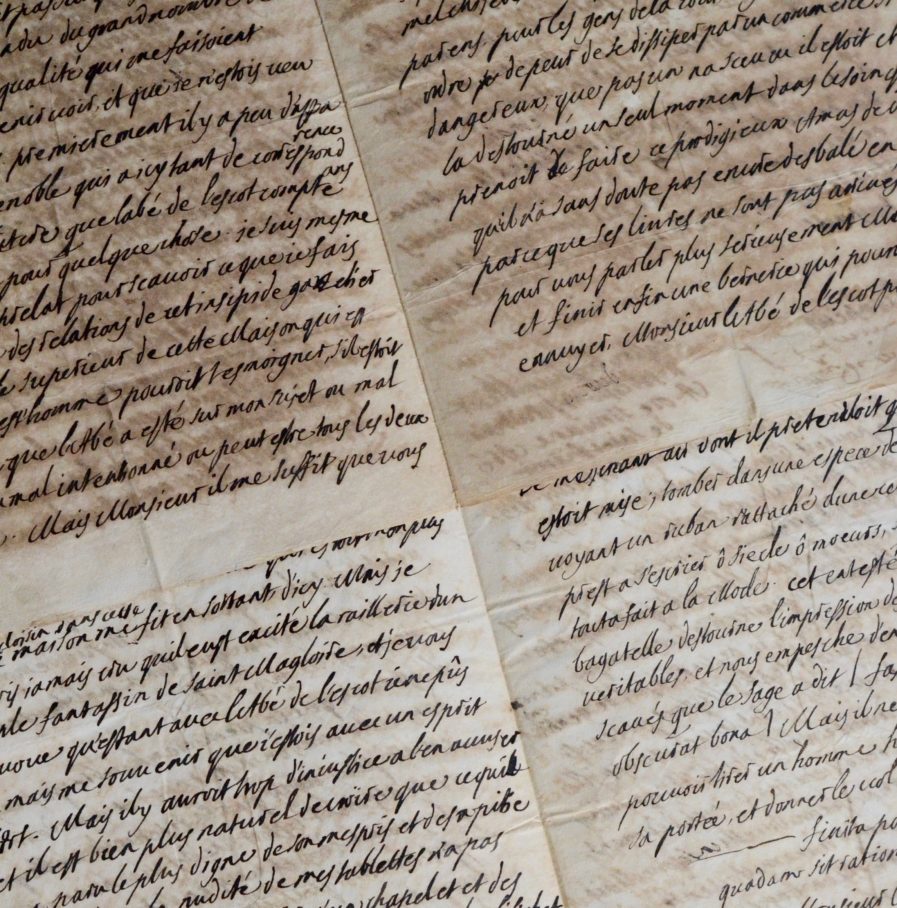 du grand nombre de
qualité qui me faisoient
venir voir, et que je n'estois venu
premierement il y a peu d'appa
rence
noble qui a icy tant de correspond
ans
que l'abé de l'escot compte
pour quelque chose. je suis mesme
prelat pour scavoir ce que je fais
des relations de cet insipide gazetier
superieur de cette Maison qui est
homme pourroit tesmoigner, s'il estoit
que l'Abé a esté sur mon sujet ou mal
mal intentionné ou peut estre tous les deux
Mais Monsieur il me suffit que vous
parens pour les gens de la cour
ordre de peur de se dissiper par un commerce si
dangereux, que pas un n'a sceu ou il estoit et
la destourné un seul moment dans le soin q
prenoit de faire ce prodigieux Amas de
qu'il n'a sans doute pas encore desbalé en
parce que ses livres ne sont pas arrivés
pour vous parler plus serieusement Mo
et finir enfin une bernerie qui pour
ennuyer. Monsieur l'Abé de l'escot p
non plus
loisir dans cette
maison me fit en sortant d'icy. Mais je
jamais cru qu'il eust excité la raillerie d'un
fantassin de saint Magloire, et je vous
avoue qu'estant avec l'Abé de l'escot je ne pûs
mais me souvenir que j'estois avec un esprit
fort. Mais il y auroit trop d'injustice a ben accuser
et il est bien plus naturel de croire que ce qui
paru le plus digne de son mespris et de sa pitié
nudité de mes tablettes n'a pas
chapelet et des
air dont il pretendoit q
estoit mise, tomber dans une espece de
voyant un ruban r'attaché d'une
prest a s'escrier ô siecle ô moeurs,
tout a fait a la Mode. cet entesté
bagatelle destourne l'impression de
veritables, et nous empesche de
scavés que le sage a dit ( fas
obscurat bona ) Mais il ne
pouvoir tirer un homme h
sa portée, et donner le col
finita po
quadam sit ration
Monsieur l